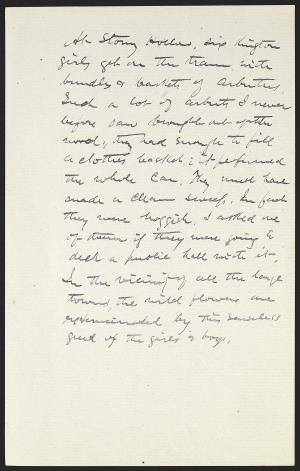 At Stony Hollow, six Kington
girls got on the train with
bundles & baskets of arbutus.
Such a lot of arbutus I never
before saw brought out of the
woods, they had enough to fill
a clothes basket; it perfumed
the whole car. They must have
made a clean sweep. In fact
they were hoggish. I asked one
of them if they were going to
deck a public hall with it.
In the vicinity of all the large
towns, the wild flowers are
exterminated by this senseless
greed of the girls & boys.